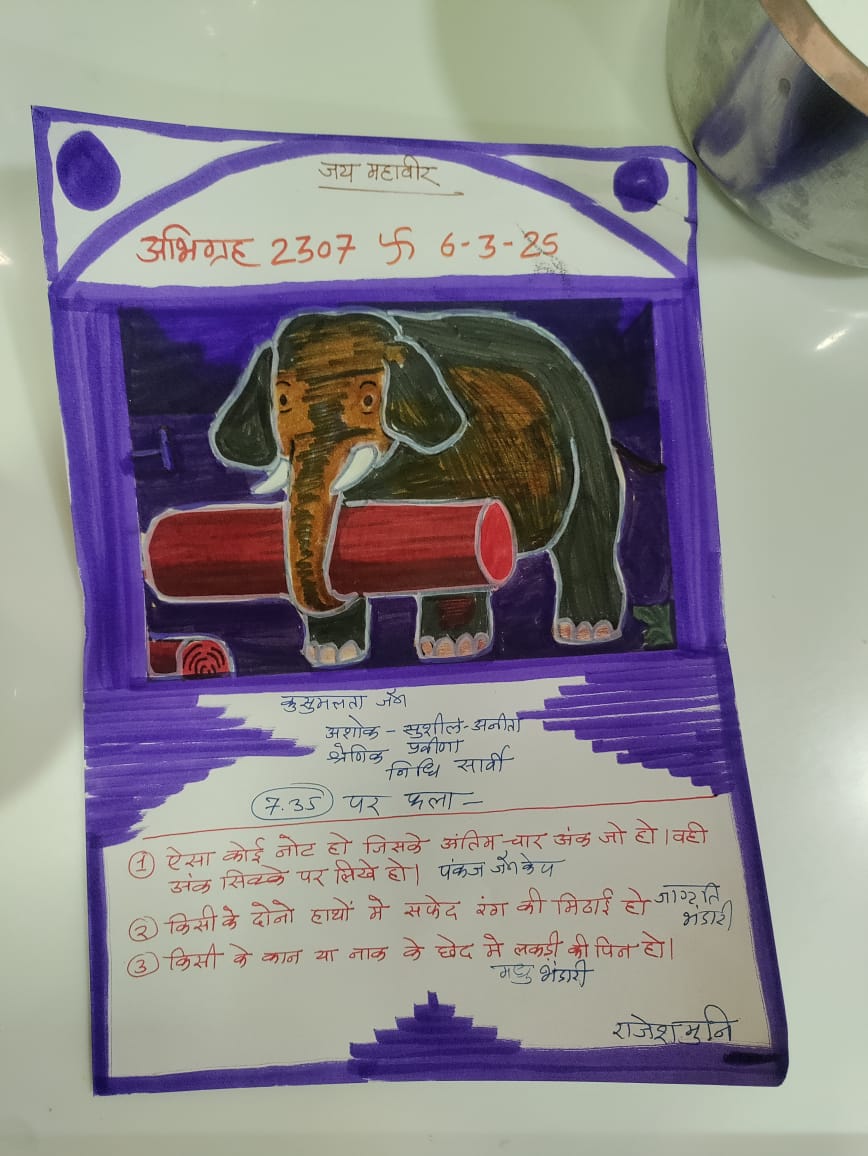 जय महावीर
अभिग्रह 2307 卐 6-3-25
कुसुमलता जैन
अशोक - सुशील - अनीता
श्रेणिक प्रवीणा
निधि सार्वी
7.35 पर फला -
① ऐसा कोई नोट हो जिसके अंतिम चार अंक जो हो। वही
अंक सिक्के पर लिखे हो। पंकज जैन
② किसी के दोनो हाथों मे सफेद रंग की मिठाई हो जागृति
भंडारी
③ किसी के कान या नाक के छेद मे लकड़ी की पिन हो।
मधु भंडारी
राजेश मुनि